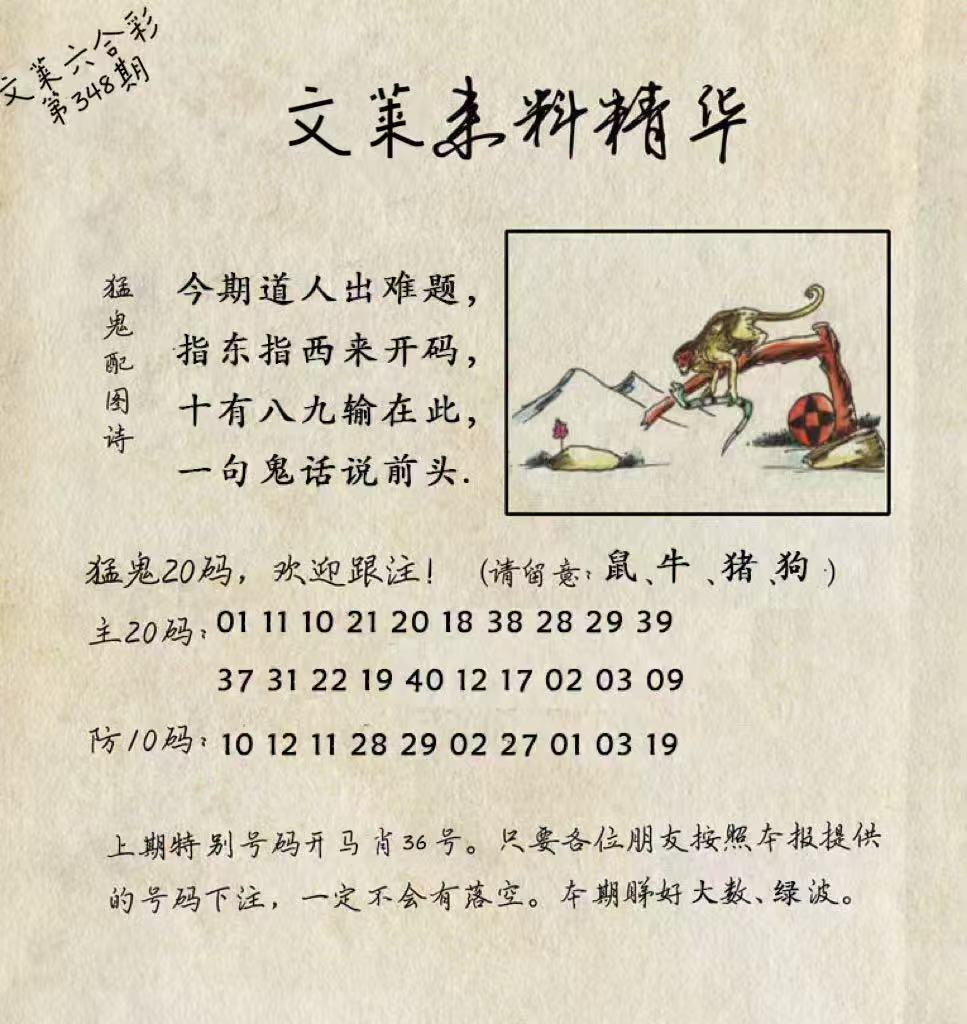 文莱六合彩
第348期
文莱来料精华
猛鬼配图诗
今期道人出难题，
指东指西来开码，
十有八九输在此，
一句鬼话说前头.
猛鬼20码，欢迎跟注！（请留意：鼠、牛、猪、狗）
主20码：01 11 10 21 20 18 38 28 29 39
37 31 22 19 40 12 17 02 03 09
防10码：10 12 11 28 29 02 27 01 03 19
上期特别号码开马肖36号。只要各位朋友按照本报提供
的号码下注，一定不会有落空。本期睇好大数、绿波。